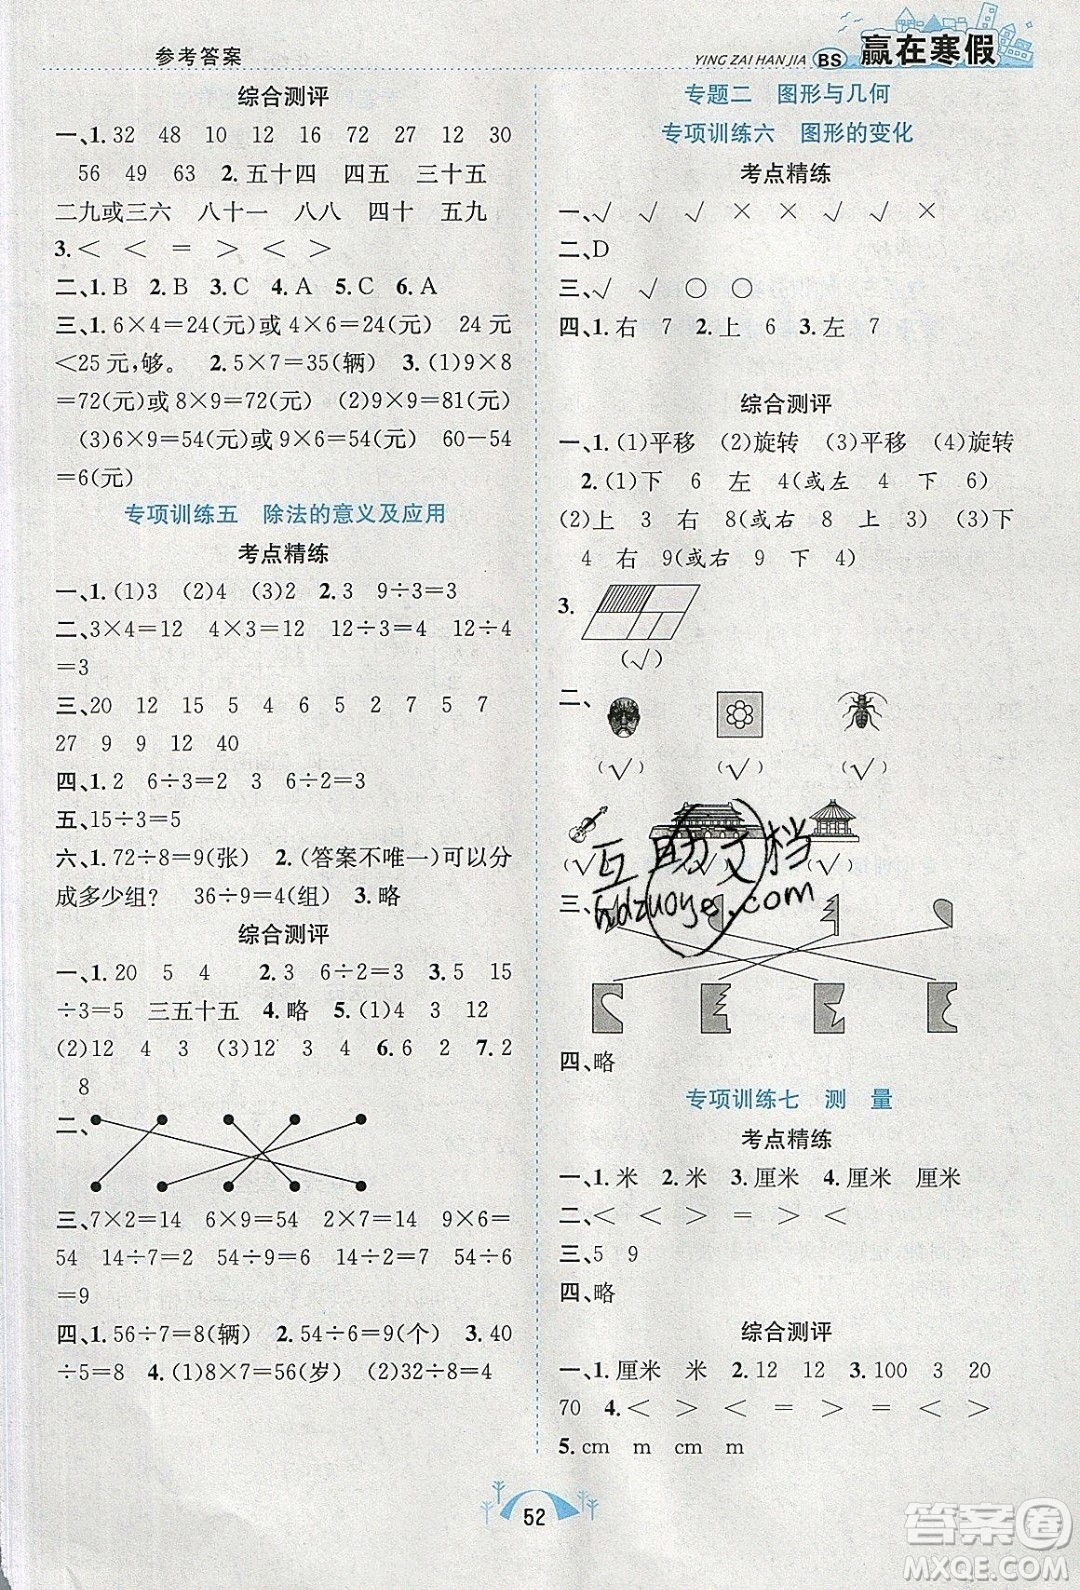 参考答案
YING ZAI HAN JIA BS 赢在寒假
综合测评
一、1. 32 48 10 12 10 12 30
56 49 63 2. 五十四 四五 三十五
二九或三六 八十一 八八 四十 五九
3. < < = > < >
二、1. B 2. B 3. C 4. A 5. C 6. A
三、1. 6×4=24(元)或 4×6=24(元) 24 元
<25 元,够。 2. 5×7=35(辆) 3. (1)9×8
=72(元)或 8×9=72(元) (2)9×9=81(元)
(3)6×9=54(元)或 9×6=54(元) 60-54
=6(元)
专项训练五 除法的意义及应用
考点精练
一、1. (1)3 (2)4 (3)2 2. 3 9÷3=3
二、3×4=12 4×3=12 12÷3=4 12÷4
=3
三、20 12 15 5 4 6 5 2 7 5 7
27 9 9 12 40
四、1. 2 6÷3=2 3 6÷2=3 2. 2
五、15÷3=5
六、1. 72÷8=9(张) 2. (答案不唯一)可以分
成多少组? 36÷9=4(组) 3. 略
综合测评
一、1. 20 5 4 2. 3 6÷2=3 3. 5 15
÷3=5 三五十五 4. 略 5. (1)4 3 12
(2)12 4 3 (3)12 3 4 6. 6 2 7. 2
8
二、
三、7×2=14 6×9=54 7×3=21 9×6=
54 14÷7=2 54÷9=6 21÷7=3 54÷6
=9
四、1. 56÷7=8(辆) 2. 54÷6=9(个) 3. 40
÷5=8 4. (1)8×7=56(岁) (2)8÷2=4
专题二 图形与几何
专项训练六 图形的变化
考点精练
一、√ √ √ × × √ √ ×
二、D
三、√ √ ○ ○
四、1. 右 7 2. 上 6 3. 左 7
综合测评
一、1. (1)平移 (2)旋转 (3)平移 (4)旋转
2. (1)下 6 左 4(或左 4 下 6)
(2)上 3 右 8(或右 8 上 3) (3)下
4 右 9(或右 9 下 4)
3.
(√)
二、
(√) (√) (√)
(√) (√) (√)
三、
四、略
专项训练七 测 量
考点精练
一、1. 米 2. 米 3. 厘米 4. 厘米 厘米
二、< < = > > <
三、5 9
四、略
综合测评
一、1. 厘米 米 2. 12 12 3. 100 3 20
70 4. < > < = > < >
5. cm m cm m
互助文档
hdzuoye.com
52
答案圈
MXQE.COM